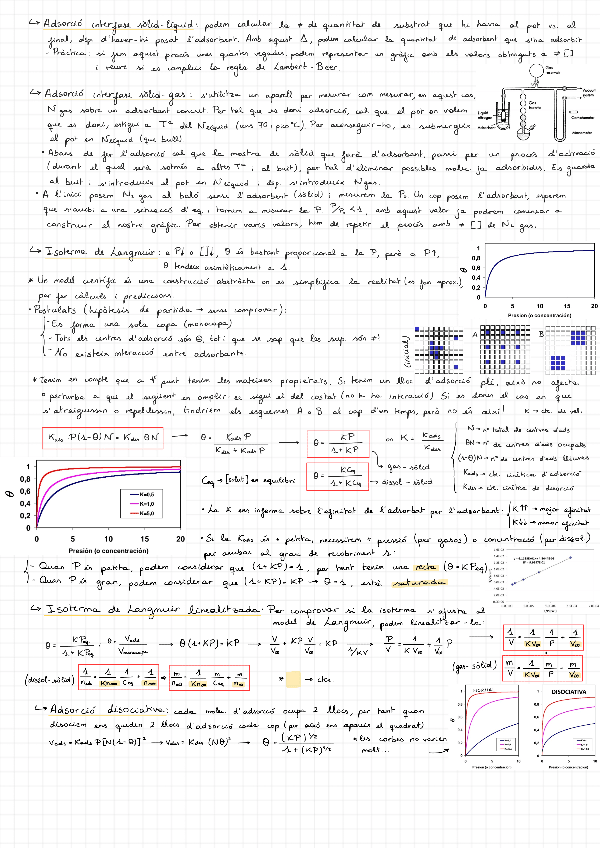 ↳ Adsorció interfase sòlid-líquid: podem calcular la ≠ de quantitat de substrat que hi havia al pot vs. al
final, dsp. d'haver-hi posat l'adsorbent. Amb aquest Δ, podem calcular la quantitat de adsorbent que s'ha adsorbit
- Pràctica: si fem aquest procés unes quantes vegades, podem representar un gràfic amb els valors obtinguts a ≠ []
i veure si es compleix la regla de Lambert-Beer.
↳ Adsorció interfase sòlid-gas: s'utilitza un aparell per mesurar com mesurar, en aquest cas,
N gas sobre un adsorbent concret. Per tal que es doni adsorció, cal que el pot on volem
que es doni, estigui a Tª del N líquid (uns 70 ºC). Per aconseguir-ho, es submergeix
el pot en N líquid (que bull)
• Abans de fer l'adsorció cal que la mostra de sòlid que farà d'adsorbent, passi per un procés d'activació
(durant el qual serà sotmès a altes Tª, al buit), per tal d'eliminar possibles molec. ja adsorbides. Es guarda
al buit, s'introdueix el pot en N líquid i dsp. s'introdueix N gas.
• A l'inici posem N₂ gas al baló sense l'adsorbent (sòlid) i mesurem la P₀. Un cop posem l'adsorbent, esperem
que s'arribi a una situació d'eq. i tornem a mesurar la P. P/P₀ < 1, amb aquest valor ja podrem començar a
construir el nostre gràfic. Per obtenir varis valors, hem de repetir el procés amb ≠ [] de N₂ gas.
↳ Isoterma de Langmuir: a P↓ o []↓, θ és bastant proporcional a la P, però a P↑,
θ tendeix asimptòticament a 1
* Un model científic és una construcció abstracta on es simplifica la realitat (es fan aprox.)
per fer càlculs i prediccions
• Postulats (hipòtesis de partida → sense comprovar):
- Es forma una sola capa (monocapa)
- Tots els centres d'adsorció són =, tot i que se sap que les sup. són ≠!
- No existeix interacció entre adsorbats.
θ
1
0,8
0,6
0,4
0,2
0
0 5 10 15 20
Presión (o concentración)
(inicial)
A
B
* Tenim en compte que a ∀ punt tenim les mateixes propietats. Si tenim un lloc d'adsorció ple, això no afecta
o perturba a que el següent en omplir-se sigui el del costat (no hi ha interacció). Si es dones el cas en que
s'atraguessin o repel·lissin, tindríem els esquemes A o B al cap d'un temps, però no és així!
K → cte. de vel.
K_ads · P(1-θ)N = K_des θN → θ = K_ads P / K_des + K_ads P → θ = KP / 1 + KP on K = K_ads / K_des
θ = KC_eq / 1 + KC_eq
→ gas-sòlid
→ dissol-sòlid
C_eq → [solut] en equilibri
N → nº total de centres d'ads
θN → nº de centres d'ads ocupats
(1-θ)N → nº de centres d'ads lliures
K_ads → cte. cinètica d'adsorció
K_des → cte. cinètica de desorció
θ
1
0,8
0,6
0,4
0,2
0
0 5 10 15 20
Presión (o concentración)
K=0,5
K=1,0
K=5,0
• La K ens informa sobre l'afinitat de l'adsorbat per l'adsorbent.
K↑↑ → major afinitat
K↓↓ → menor afinitat
• Si la K és petita, necessitem + pressió (per gasos) o concentració (per dissol)
per arribar al grau de recobriment 1.
- Quan P és petita, podem considerar que (1+KP) = 1, per tant tenim una recta (θ = KP_eq)
- Quan P és gran, podem considerar que (1+KP) = KP → θ = 1, està saturada
↳ Isoterma de Langmuir linealitzada: Per comprovar si la isoterma s'ajusta al
model de Langmuir, podem linealitzar-la:
θ = KP_eq / 1 + KP_eq ; θ = V_ads / V_monocapa → θ(1+KP) = KP → V/V∞ + KP V/V∞ = KP → P/V = 1/KV∞ + 1/V∞ P → 1/V = 1/KV∞ · 1/P + 1/V∞
(dissol-sòlid) 1/n_ads = 1/Kn∞ · 1/C_eq + 1/n∞ ; m/n_ads = 1/Kn∞ · m/C_eq + m/n∞
→ ctes
(gas-sòlid) m/V = 1/KV∞ · m/P + m/V∞
↳ Adsorció dissociativa: cada molec. d'adsorció ocupa 2 llocs, per tant quan
dissociem ens queden 2 llocs d'adsorció cada cop (per això ens apareix el quadrat)
v_ads = K_ads P[N(1-θ)]² → v_des = K_des (Nθ)² → θ = (KP)^1/2 / 1 + (KP)^1/2
* les corbes no varien
molt...
DISOCIATIVA
Presión (o concentración)
Presión (o concentración)